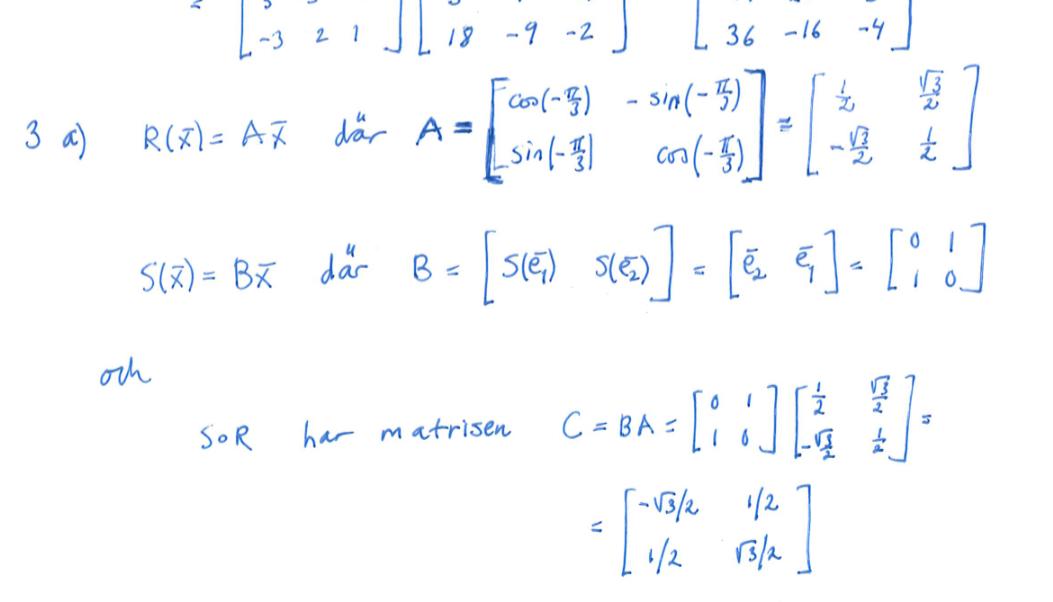 = [-3 2 1] [18 -9 -2] [36 -16 -4]
3 a) R(x̄) = Ax̄ där A = [cos(-π/3) -sin(-π/3); sin(-π/3) cos(-π/3)] = [1/2 √3/2; -√3/2 1/2]
S(x̄) = Bx̄ där B = [S(ē₁) S(ē₂)] = [ē₂ ē₁] = [0 1; 1 0]
och
S∘R har matrisen C = BA = [0 1; 1 0] [1/2 √3/2; -√3/2 1/2] =
= [-√3/2 1/2; 1/2 √3/2]